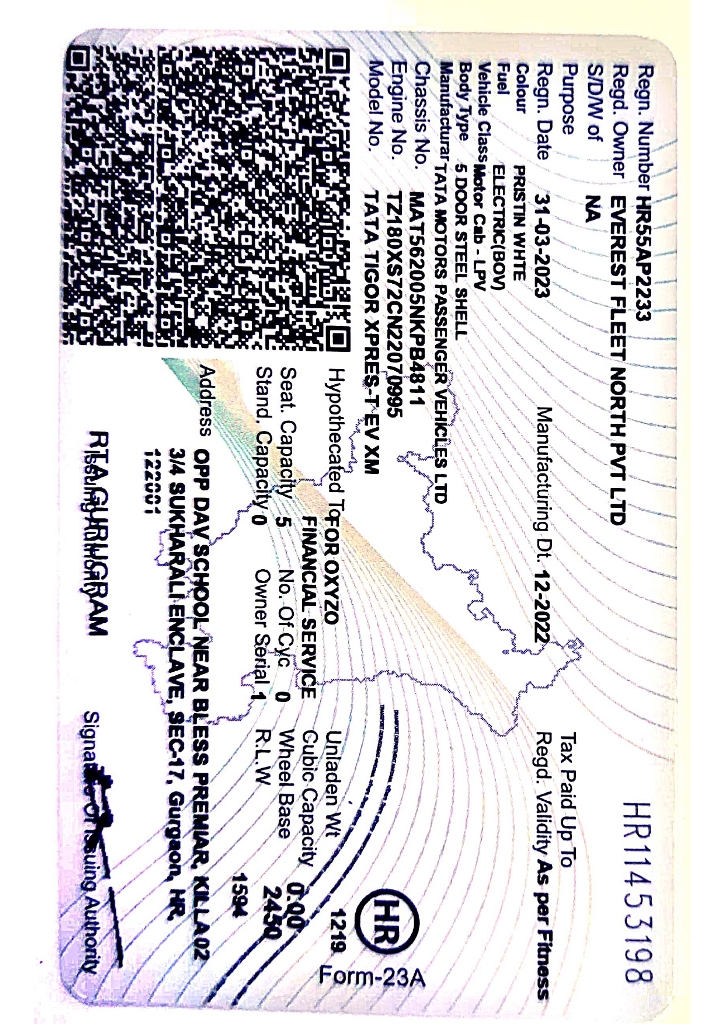 HR11453198
Regn. Number HR55AP2233
Regd. Owner EVEREST FLEET NORTH PVT LTD
S/D/W of NA
Purpose
Tax Paid Up To
Regn. Date 31-03-2023 Manufacturing Dt. 12-2022 Regd. Validity As per Fitness
Colour PRISTIN WHTE
Fuel ELECTRIC(BOV)
Vehicle Class Motor Cab - LPV
Body Type 5 DOOR STEEL SHELL
Manufactural TATA MOTORS PASSENGER VEHICLES LTD
Chassis No. MAT562005NKPB4811
Engine No. TZ180XS72CN22070995
Model No. TATA TIGOR XPRES-T EV XM
HR
Form-23A
Hypothecated To FOR OXYZO Unladen Wt 1219
FINANCIAL SERVICE Cubic Capacity 0.00
Seat. Capacity 5 No. Of Cyc 0 Wheel Base 2450
Stand. Capacity 0 Owner Serial 1 R.L.W 1594
Address OPP DAV SCHOOL NEAR BLESS PREMIAR, KILLA 02
3/4 SUKHARALI ENCLAVE, SEC-17, Gurgaon, HR,
122001
RTA GURUGRAM
Issuing Authority Signature Of Issuing Authority